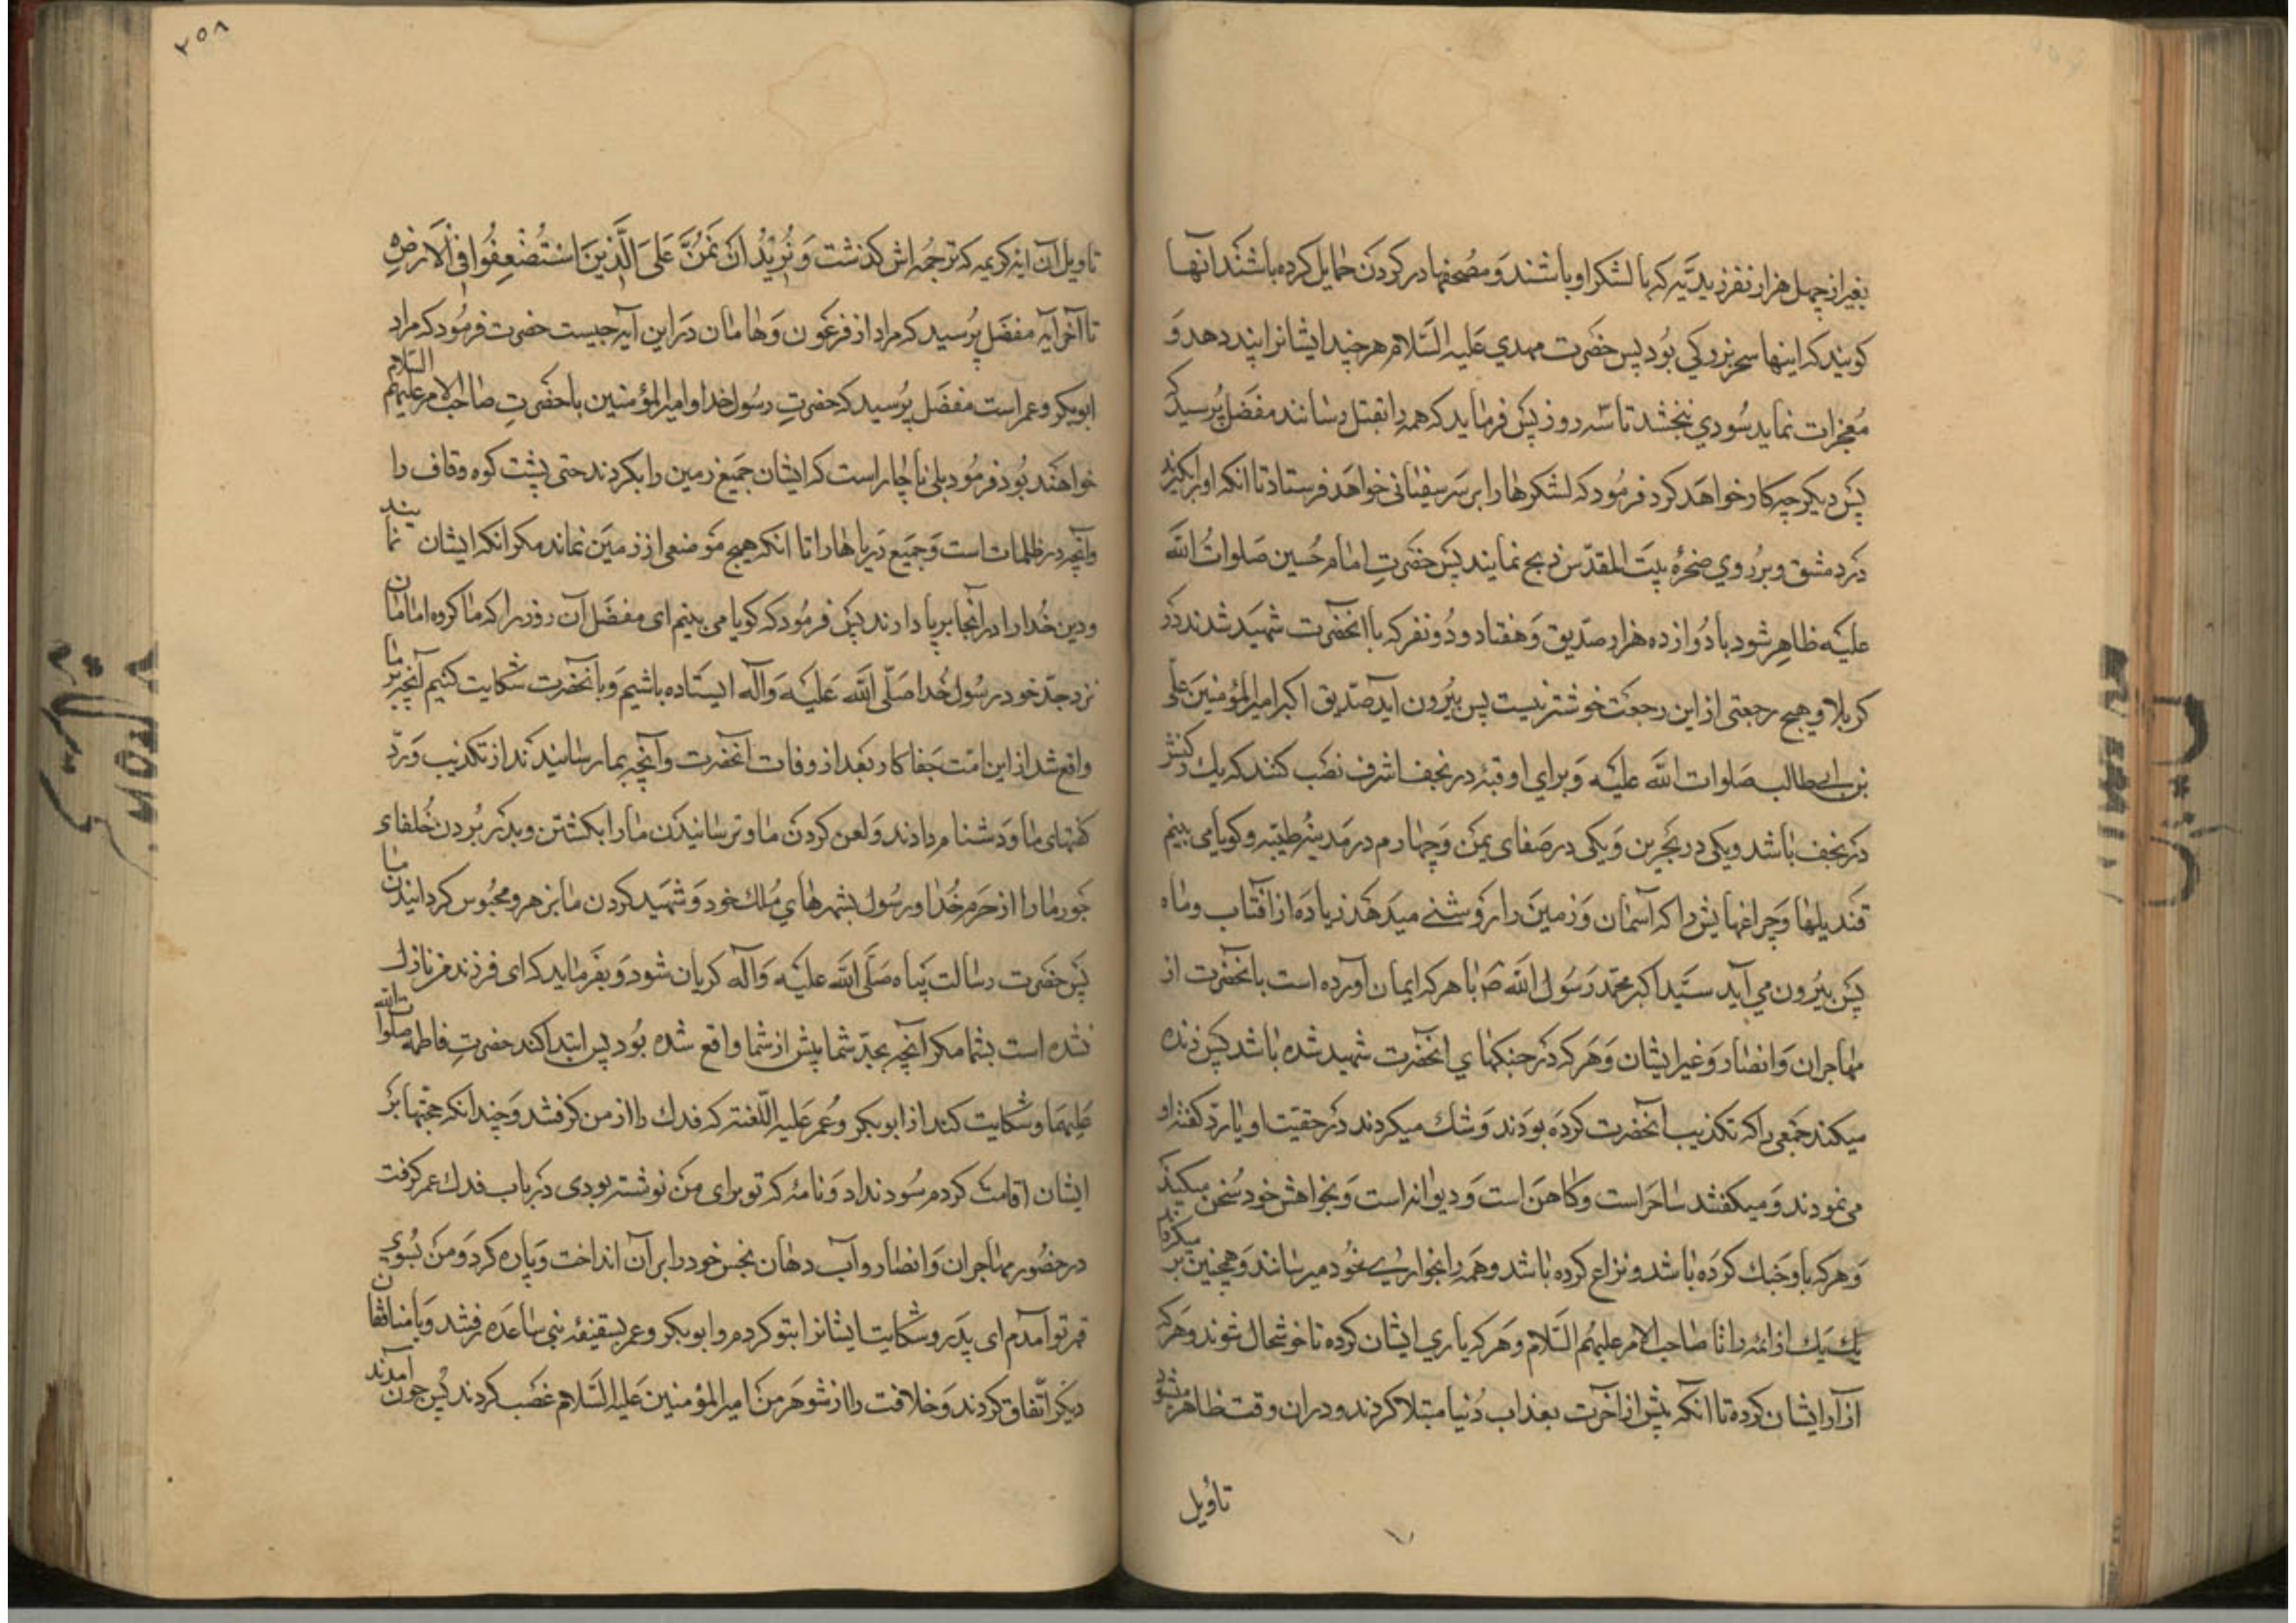 بغیر از چهل هزار نفر زیدیّه که با لشکر او باشند و مصحفها در کردن حمایل کرده باشند آنها
کویند که اینها سحر بزرکی بود پس حضرت مهدی علیه السّلام هر چند ایشانرا پند دهد و
معجزات نماید سودی نبخشد تا سه روز پس فرماید که همه را بقتل رسانند مفضل پرسید که
پس دیکر چه کار خواهد کرد فرمود که لشکرها را بر سر سفیانی خواهد فرستاد تا آنکه او را بکیرند
در دمشق و بر روی صخرهٔ بیت المقدّس ذبح نمایند پس حضرت امام حسین صلوات الله
علیه ظاهر شود با دوازده هزار صدّیق و هفتاد و دو نفر که با آنحضرت شهید شدند در
کربلا و هیچ رجعتی از این رجعت خوشتر نیست پس بیرون آید صدّیق اکبر امیر المؤمنین علی
بن ابی طالب صلوات الله علیه و برای او قبّهٔ در نجف اشرف نصب کنند که یک رکنش
در نجف باشد و یکی در بحرین و یکی در صفای یمن و چهارم در مدینه طیّبه و کویا می بینم
قندیلها و چراغهایش را که آسمان و زمین را روشنی میدهد زیاده از آفتاب و ماه
پس بیرون می آید سیّد اکبر محمّد رسول الله ص با هر که ایمان آورده است بآنحضرت از
مهاجران و انصار و غیر ایشان و هر که در جنکهای آنحضرت شهید شده باشد پس زنده
میکند جمعی را که تکذیب آنحضرت کرده بودند و شک میکردند در حقیت او یا ردّ کفته او
می نمودند و میکفتند ساحر است و کاهن است و دیوانه است و بخواهش خود سخن میکیند
و هر که با او جنک کرده باشد و نزاع کرده باشد و همه را بخزای خود میرسانند و همچنین بر میکرداند
یک یک از ائمه را تا صاحب الامر علیهم السّلام و هر که یاری ایشان کرده تا خوشحال شوند و هر که
آزار ایشان کرده تا آنکه پیش از آخرت بعذاب دنیا مبتلا کردند و در آن وقت ظاهر میشود
تأویل
۲۵۸
تاویل آن آیه کریمه که ترجمه اش کذشت وَ نُرِیدُ اَنْ نَمُنَّ عَلَی الَّذِینَ اسْتُضْعِفُوا فِی الْاَرْضِ
تا آخر آیه مفضل پرسید که مراد از فرعون و هامان در این آیه چیست حضرت فرمود که مراد
ابوبکر و عمر است مفضل پرسید که حضرت رسول خدا و امیر المؤمنین با حضرت صاحب الامر علیهم السلام
خواهند بود فرمود بلی ناچار است که ایشان جمیع زمین را بکردند حتی پشت کوه قاف را
و آنچه در ظلمات است و جمیع دریاها را تا آنکه هیچ موضعی از زمین نماند مکر آنکه ایشان نمایند
و دین خدا را در آنجا برپا دارند پس فرمود که کویا می بینم ای مفضل آن روز را که ما کروه امامان
نزد جدّ خود رسول خدا صلّی الله علیه و آله ایستاده باشیم و بآنحضرت شکایت کنیم آنچه بر ما
واقع شد از این امّت جفاکار بعد از وفات آنحضرت و آنچه بما رسانیدند از تکذیب و ردّ
کفتهای ما و دشنام دادند و لعن کردن ما و ترسانیدن ما را بکشتن و بدر بردن خلفاء
جور ما را از حرم خدا و رسول بشهرهای ملک خود و شهید کردن ما بزهر و محبوس کردانیدن ما
پس حضرت رسالت پناه صلّی الله علیه و آله کریان شود و بفرماید که ای فرزند من نازل
نشده است بشما مکر آنچه بجدّ شما پیش از شما واقع شده بود پس ابتدا کند حضرت فاطمه صلوات الله
علیهما و شکایت کند از ابوبکر و عمر علیه اللّعنه که فدک را از من کرفتند و چندانکه حجتها بر
ایشان اقامت کردم سود نداد و نامهٔ که تو برای من نوشته بودی در باب فدک عمر کرفت
در حضور مهاجران و انصار و آب دهان نجس خود را بر آن انداخت و پاره کرد و من بسوی
قبر تو آمدم ای پدر و شکایت ایشانرا بتو کردم و ابوبکر و عمر بسقیفه بنی ساعده رفتند و با منافقان
دیکر اتّفاق کردند و خلافت را از شوهر من امیر المؤمنین علیه السّلام غصب کردند پس چون آمدند